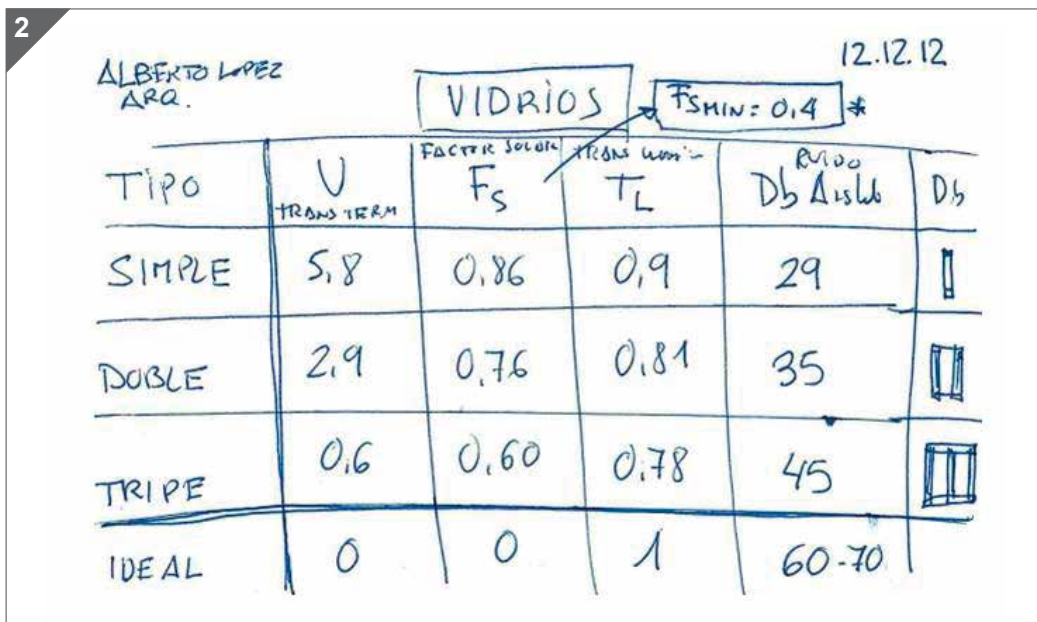 2
ALBERTO LOPEZ
ARQ.
12.12.12
VIDRIOS
FSMIN= 0,4 *
TIPO U TRANS TERM FACTOR SOLAR FS TRANS TL RUIDO Db Db
SIMPLE 5,8 0,86 0,9 29
DOBLE 2,9 0,76 0,81 35
TRIPE 0,6 0,60 0,78 45
IDEAL 0 0 1 60-70